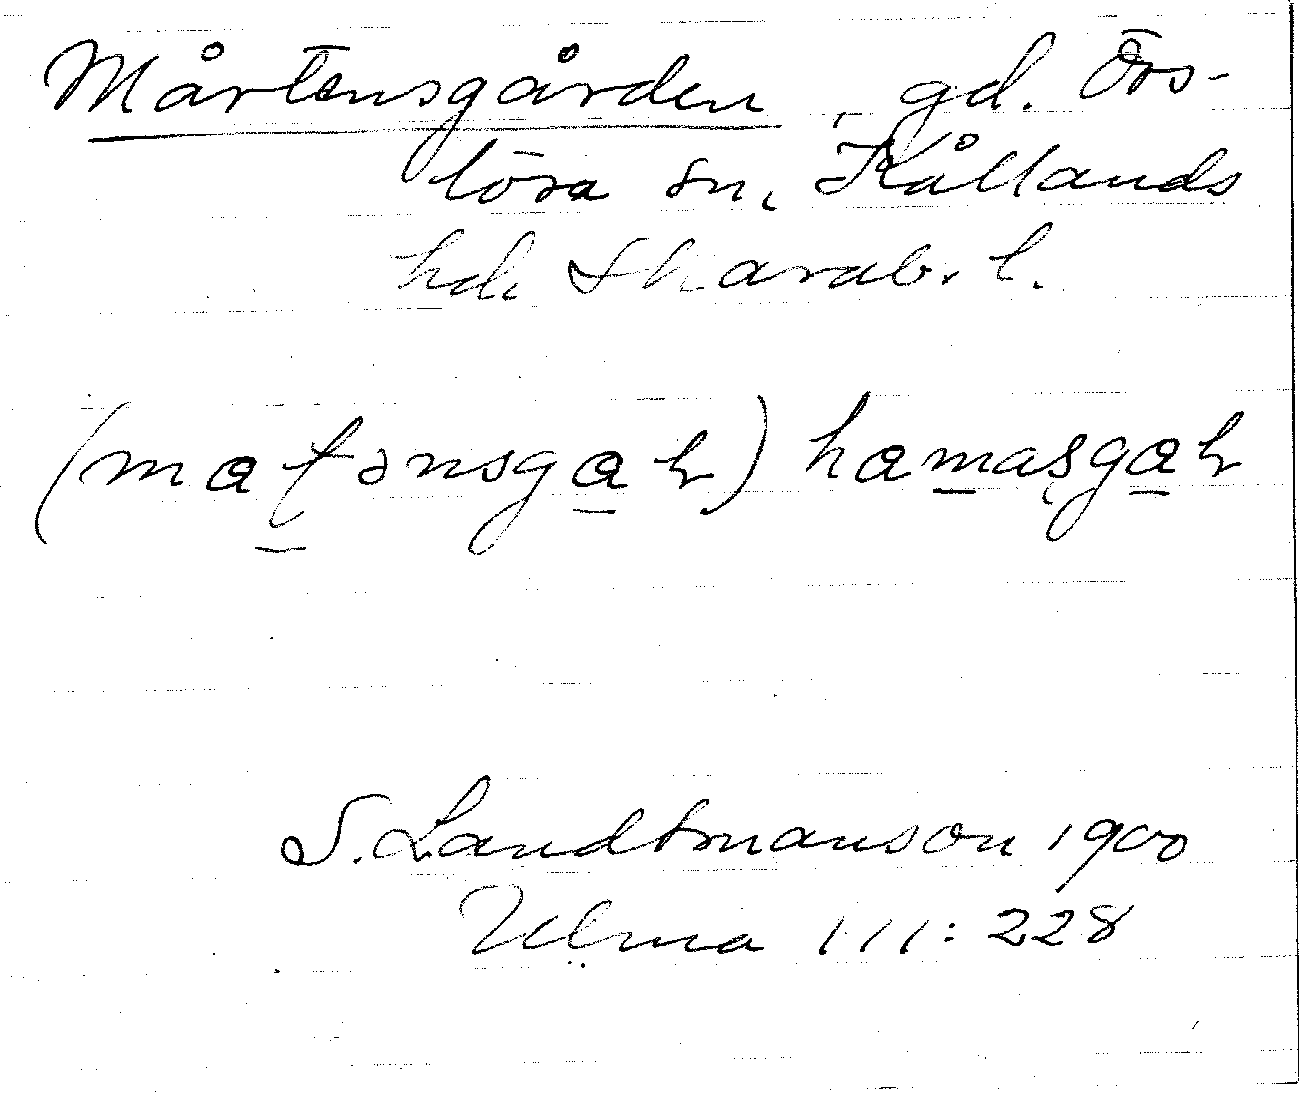 Mårtensgården, gd. Örs-
lösa sn, Kållands
hd. Skarab. l.
(matənsgah) hamasgah
S. Landtmanson 1900
Ulma 111: 228